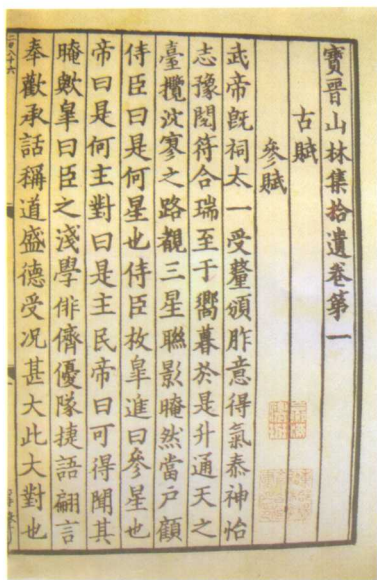 寶晉山林集拾遺卷第一
古賦
參賦
武帝旣祠太一受釐頒胙意得氣泰神怡
志豫閱符合瑞至于嚮暮於是升通天之
臺攬泬寥之路覩三星聯影晻然當戶顧
侍臣曰是何星也侍臣枚皐進曰參星也
帝曰是何主對曰是主民帝曰可得聞其
晻歟皐曰臣之淺學俳儕優隊捷語翩言
奉歡承話稱道盛德受況甚大此大對也